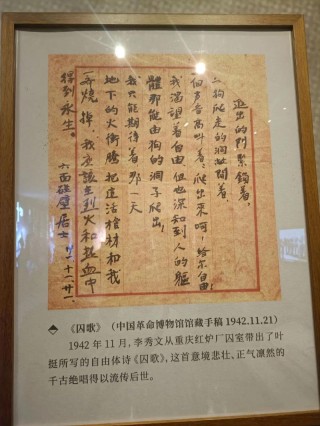 進出的門緊鎖着、
狗爬走的洞敞開着、
一個声音高叫着：爬出来呵，給尔自由！
我渴望着自由，但也深知到人的軀
體那能由狗的洞子爬出！
我只能期待着，那一天
地下的火衝騰，把這活棺材和我
一齊燒掉，我應該在烈火和热血中
得到永生。 六面碰壁居士 十一 廿一
《囚歌》（中国革命博物馆馆藏手稿 1942.11.21）
1942 年 11 月，李秀文从重庆红炉厂囚室带出了叶
挺所写的自由体诗《囚歌》，这首意境悲壮、正气凛然的
千古绝唱得以流传后世。